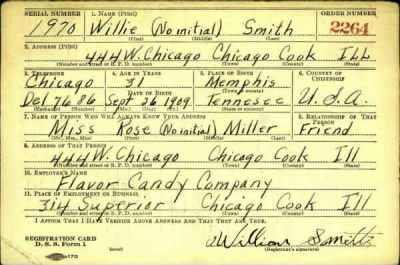 SERIAL NUMBER 1. NAME (Print) ORDER NUMBER
1970 Willie (No initial) Smith 2264
(First) (Middle) (Last)
2. ADDRESS (Print)
444 W. Chicago Chicago Cook Ill
(Number and street or R. F. D. number) (Town) (County) (State)
3. TELEPHONE 4. AGE IN YEARS 5. PLACE OF BIRTH 6. COUNTRY OF CITIZENSHIP
Chicago 31 Memphis
DATE OF BIRTH (Town or county)
Del 7676 Sept 26 1909 Tennesee U.S.A.
(Exchange) (Number) (Mo.) (Day) (Yr.) (State or country)
7. NAME OF PERSON WHO WILL ALWAYS KNOW YOUR ADDRESS 8. RELATIONSHIP OF THAT PERSON
Miss Rose (No initial) Miller Friend
(Mr., Mrs., Miss) (First) (Middle) (Last)
9. ADDRESS OF THAT PERSON
444 W. Chicago Chicago Cook Ill
(Number and street or R. F. D. number) (Town) (County) (State)
10. EMPLOYER'S NAME
Flavor Candy Company
11. PLACE OF EMPLOYMENT OR BUSINESS
314 Superior Chicago Cook Ill
(Number and street or R. F. D. number) (Town) (County) (State)
I AFFIRM THAT I HAVE VERIFIED ABOVE ANSWERS AND THAT THEY ARE TRUE.
REGISTRATION CARD
D. S. S. Form 1 William Smith
(Registrant's signature)